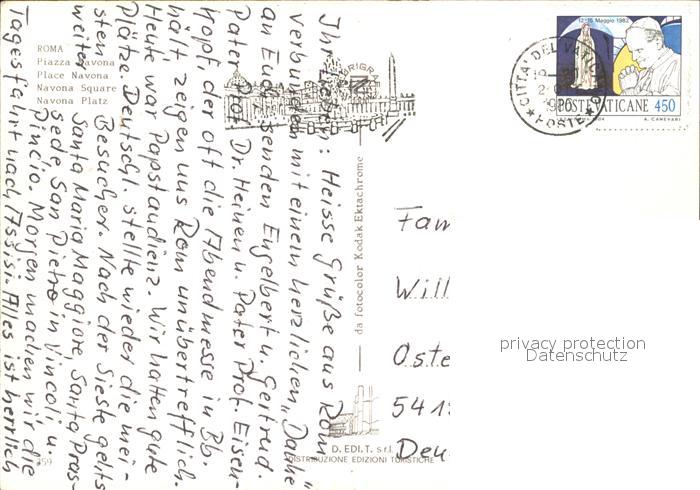 ROMA
Piazza Navona
Place Navona
Navona Square
Navona Platz
Ihr Lieben: Heisse Grüße aus Rom
verbunden mit einem herzlichen "Danke"
an Euch senden Engelbert u. Gertrud.
Pater Prof. Dr. Heinen u. Pater Prof. Eisen-
kopf, der oft die Abendmesse in Bb.
hält zeigen uns Rom unübertrefflich.
Heute war Papstaudienz. Wir hatten gute
Plätze. Deutschl. stellte wieder die mei-
sten Besucher. Nach der Sieste gehts
weiter Santa Maria Maggiore, Santa Pras-
sede, San Pietro in Vincoli, u.
Pincio. Morgen machen wir die
Tagesfahrt nach Assisi. Alles ist herrlich
da fotocolor Kodak Ektachrome
D. EDI.T. s.r.l.
DISTRIBUZIONE EDIZIONI TURISTICHE
12-15 Maggio 1982
POSTE VATICANE 450
A. CANEVARI
CITTA' DEL VATICANO
POSTE
Fam
Will
Oste
541
Deu
privacy protection
Datenschutz